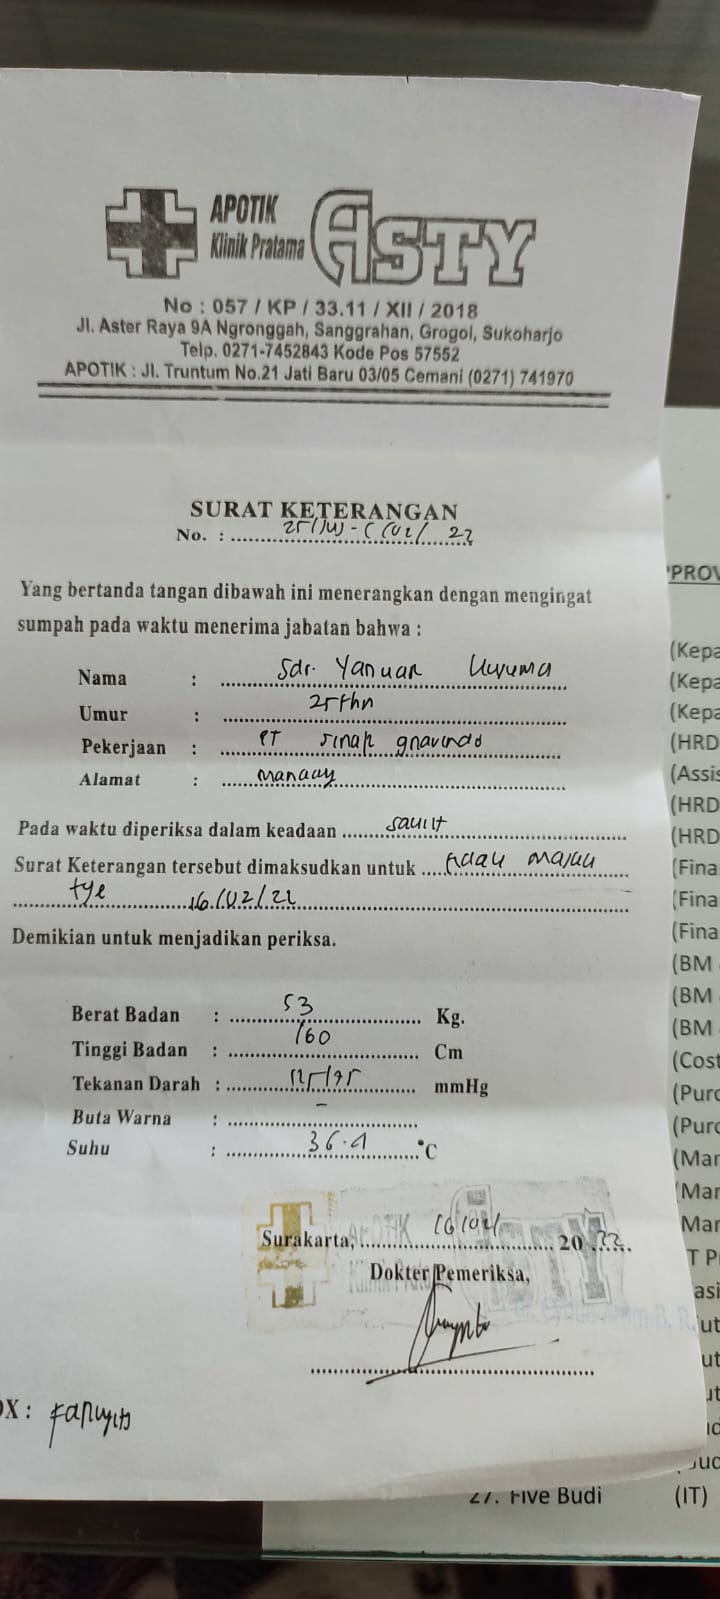 APOTIK
Klinik Pratama ASTY
No : 057 / KP / 33.11 / XII / 2018
Jl. Aster Raya 9A Ngronggah, Sanggrahan, Grogol, Sukoharjo
Telp. 0271-7452843 Kode Pos 57552
APOTIK : Jl. Truntum No.21 Jati Baru 03/05 Cemani (0271) 741970
SURAT KETERANGAN
No. :
Yang bertanda tangan dibawah ini menerangkan dengan mengingat
sumpah pada waktu menerima jabatan bahwa :
Nama : Sdr. Yanuar
Umur : 25 thn
Pekerjaan : PT
Alamat :
Pada waktu diperiksa dalam keadaan sakit
Surat Keterangan tersebut dimaksudkan untuk
tgl 16/02/22
Demikian untuk menjadikan periksa.
Berat Badan : 53 Kg.
Tinggi Badan : 160 Cm
Tekanan Darah : mmHg
Buta Warna : -
Suhu : °C
Surakarta, 20 22
Dokter Pemeriksa,
DX :
(Kepa
(Kepa
(Kepa
(HRD
(Assis
(HRD
(HRD
(Fina
(Fina
(Fina
(BM
(BM
(BM
(Cost
(Purc
(Purc
(Mar
Mar
Mar
27. Five Budi (IT)